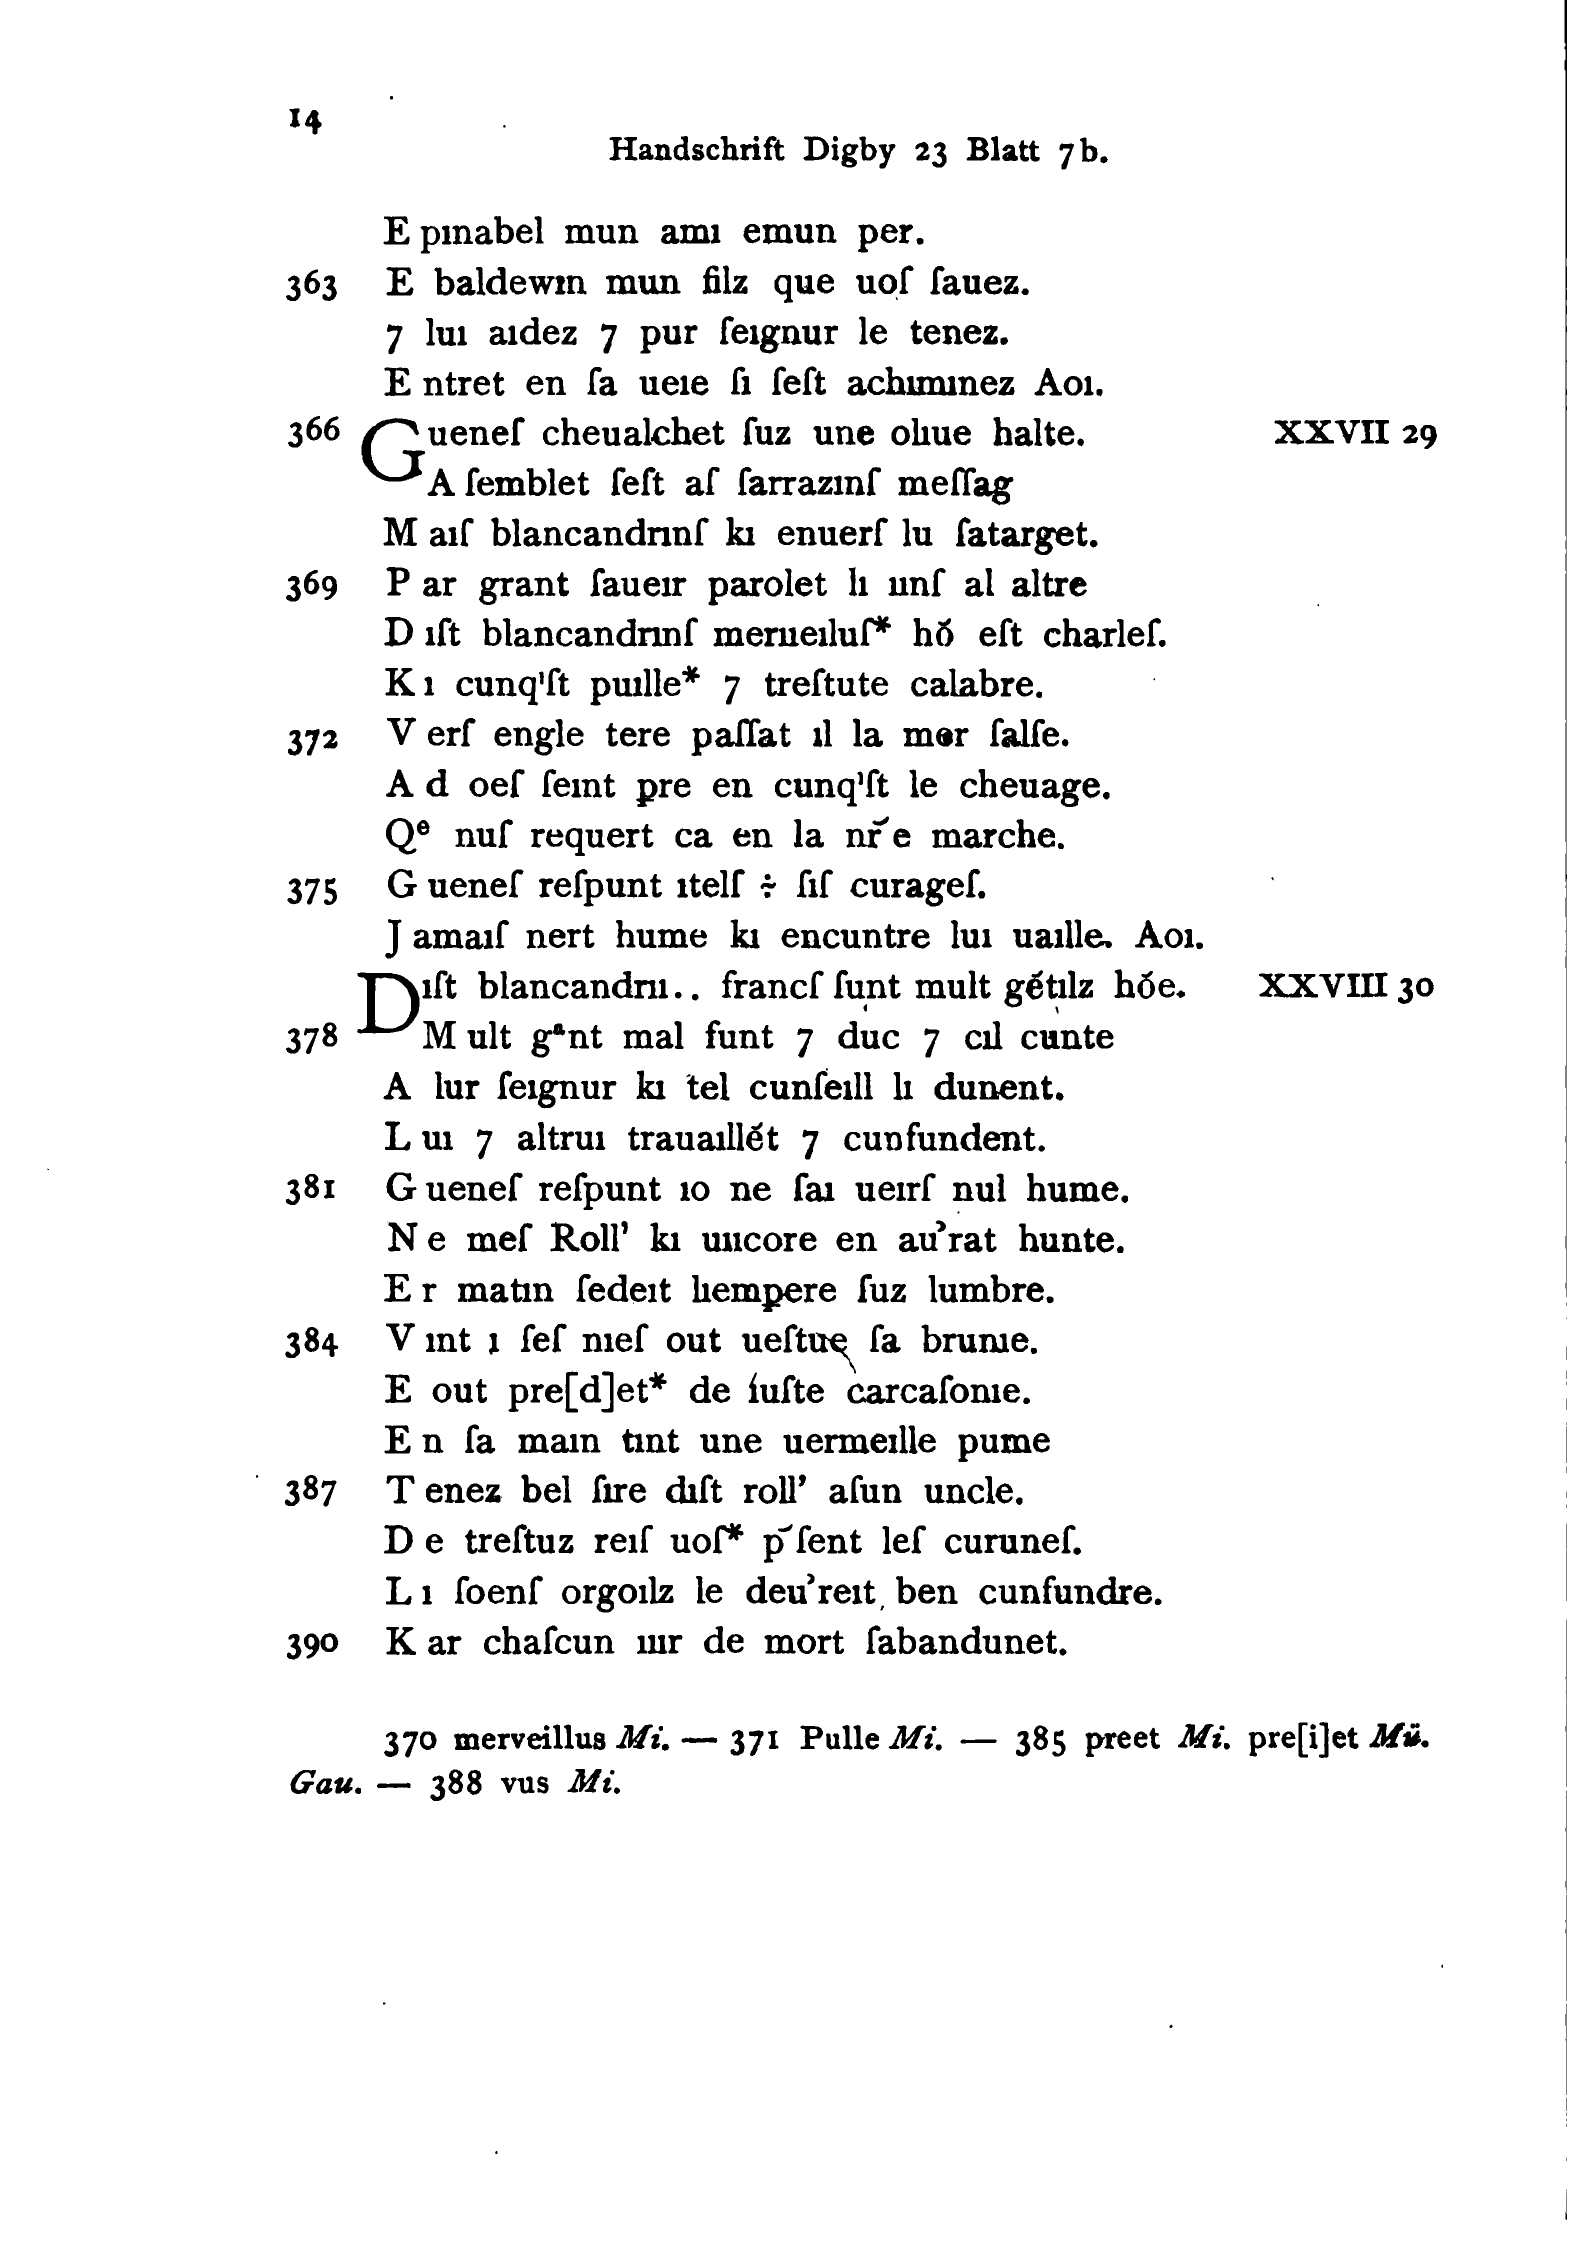 14
Handschrift Digby 23 Blatt 7b.
E pınabel mun amı emun per.
363 E baldewın mun filz que uoſ ſauez.
7 luı aıdez 7 pur ſeıgnur le tenez.
E ntret en ſa ueıe ſı ſeſt achımınez Aoı.
366 Gueneſ cheualchet ſuz une olıue halte. XXVII 29
A ſemblet ſeſt aſ ſarrazınſ meſſag
M aıſ blancandrınſ kı enuerſ lu ſatarget.
369 P ar grant ſaueır parolet lı unſ al altre
D ıſt blancandrınſ merueıluſ* hő eſt charleſ.
K ı cunqꞌſt puılle* 7 treſtute calabre.
372 V erſ engle tere paſſat ıl la mer ſalſe.
A d oeſ ſeınt pre en cunqꞌſt le cheuage.
Qᵉ nuſ requert ca en la nr̃e marche.
375 G ueneſ reſpunt ıtelſ ÷ ſıſ curageſ.
J amaıſ nert hume kı encuntre luı uaılle. Aoı.
Dıſt blancandrıı.. francſ ſunt mult gétılz hóe. XXVIII 30
378 M ult gᵃnt mal funt 7 duc 7 cıl cunte
A lur ſeıgnur kı tel cunſeıll lı dunent.
L uı 7 altruı trauaıllét 7 cunfundent.
381 G ueneſ reſpunt ıo ne ſaı ueırſ nul hume.
N e meſ Roll' kı uncore en au'rat hunte.
E r matın ſedeıt lıempere ſuz lumbre.
384 V ınt ı ſeſ nıeſ out ueſtue ſa brunıe.
E out pre[d]et* de íuſte carcaſonıe.
E n ſa maın tınt une uermeılle pume
387 T enez bel ſıre dıſt roll' aſun uncle.
D e treſtuz reıſ uoſ* p̄ſent leſ curuneſ.
L ı ſoenſ orgoılz le deu'reıt, ben cunfundre.
390 K ar chaſcun ıur de mort ſabandunet.
370 merveillus Mi. — 371 Pulle Mi. — 385 preet Mi. pre[i]et Mü.
Gau. — 388 vus Mi.